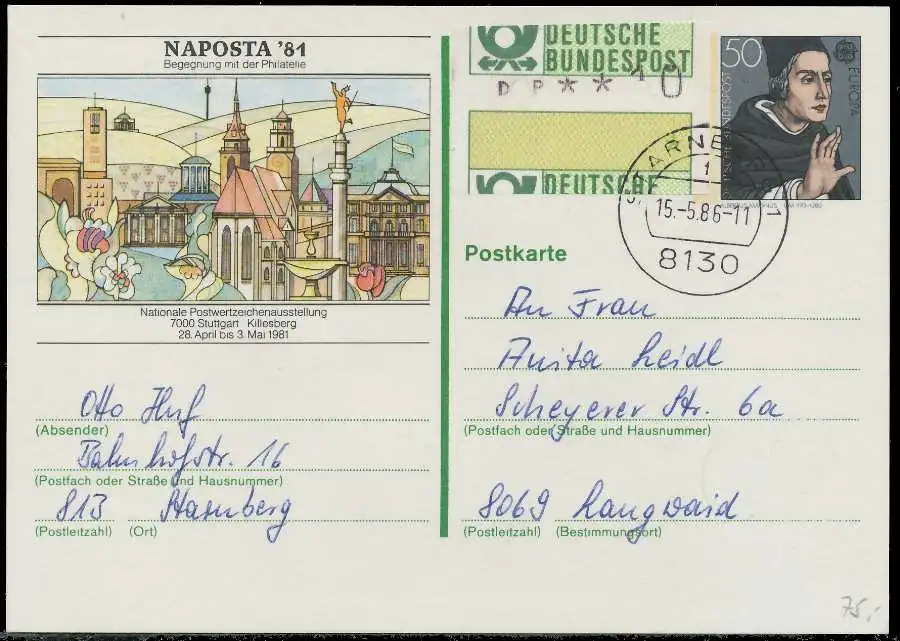 NAPOSTA '81
Begegnung mit der Philatelie
Nationale Postwertzeichenausstellung
7000 Stuttgart Killesberg
28. April bis 3. Mai 1981
Otto Huf
(Absender)
Bahnhofstr. 16
(Postfach oder Straße und Hausnummer)
813 Starnberg
(Postleitzahl) (Ort)
DEUTSCHE
BUNDESPOST
DP**10
DEUTSCHE
50
EUROPA
BUNDESPOST
STARNBERG
1
15.-5.86-11
1
8130
Postkarte
An Frau
Anita Leidl
Scheyerer Str. 6a
(Postfach oder Straße und Hausnummer)
8069 Langwaid
(Postleitzahl) (Bestimmungsort)
75,-